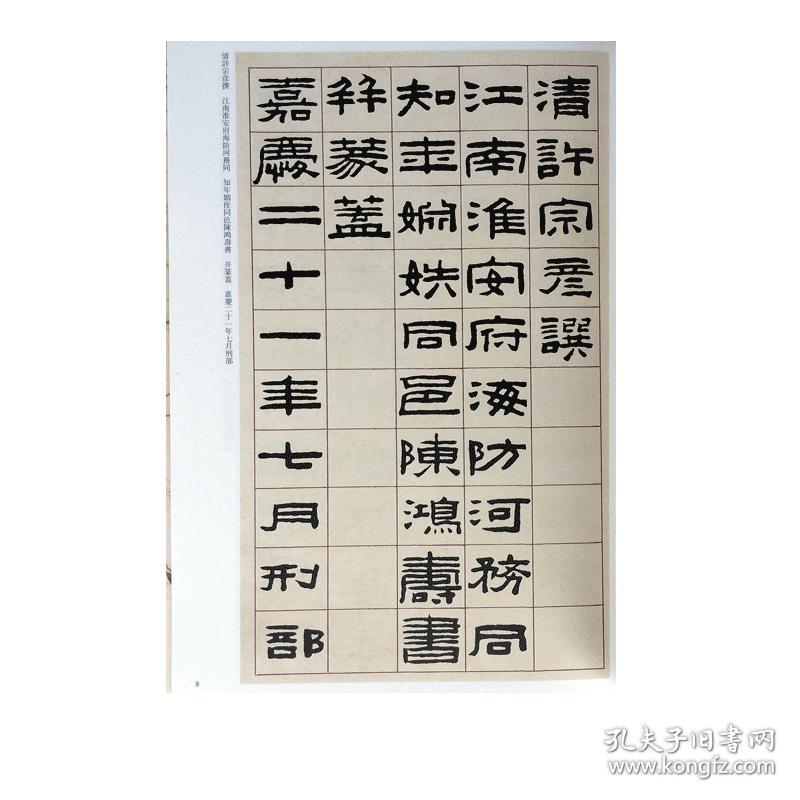 清許宗彥譔
江南淮安府海防河務同
知年姻姪同邑陳鴻壽書
并篆蓋
嘉慶二十一年七月刑部
清許宗彥撰　江南淮安府海防河務同　知年姻侄同邑陳鴻壽書　并篆蓋　嘉慶二十一年七月刑部
8
孔夫子旧书网
www.kongfz.com